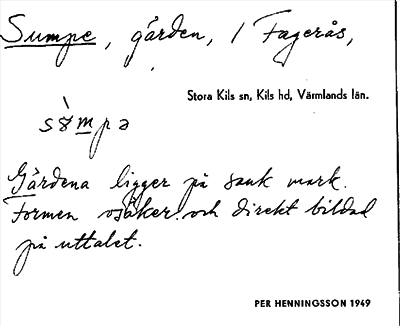 Sumpe, gården, i Fagerås,
Stora Kils sn, Kils hd, Värmlands län.
Gårdena ligger på sank mark.
Formen osäker och direkt bildad
på uttalet.
PER HENNINGSSON 1949